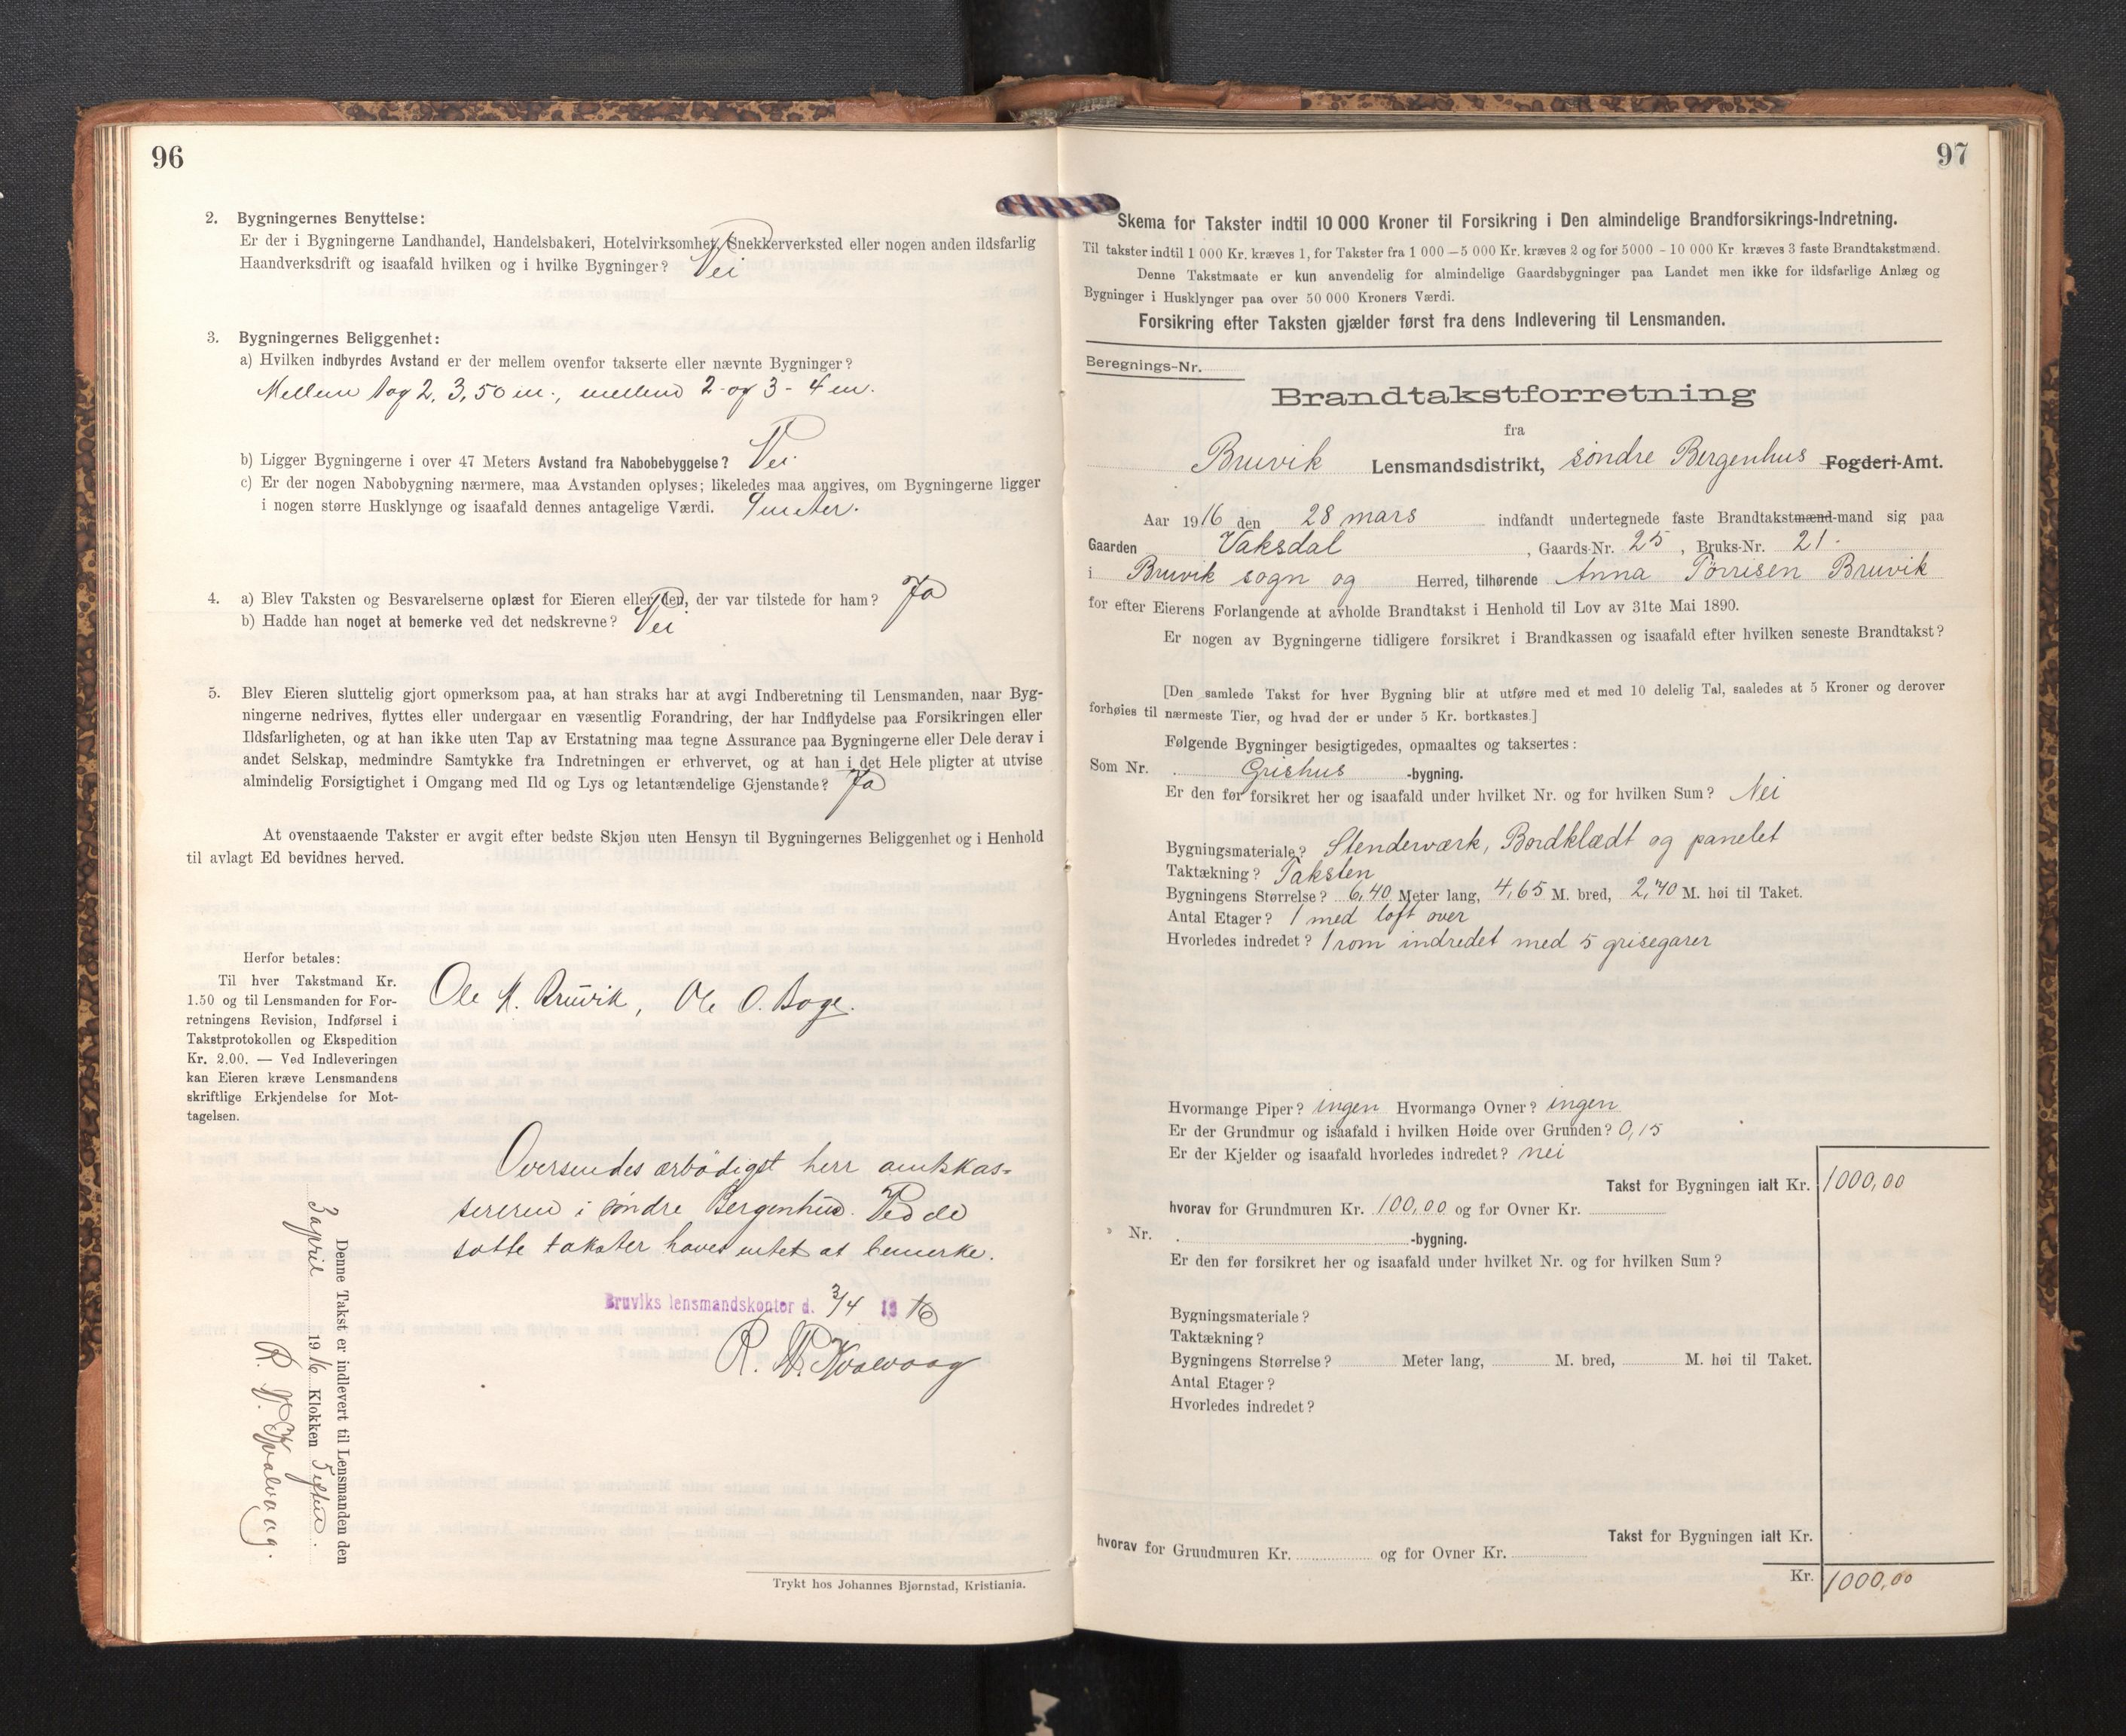 96
2. Bygningernes Benyttelse:
Er der i Bygningerne Landhandel, Handelsbakeri, Hotelvirksomhet, Snekkerverksted eller nogen anden ildsfarlig
Haandverksdrift og isaafald hvilken og i hvilke Bygninger? Nei
3. Bygningernes Beliggenhet:
a) Hvilken indbyrdes Avstand er der mellem ovenfor takserte eller nævnte Bygninger?
Mellem 1 og 2, 3,50 m., mellem 2 og 3 - 4 m.
b) Ligger Bygningerne i over 47 Meters Avstand fra Nabobebyggelse? Nei.
c) Er der nogen Nabobygning nærmere, maa Avstanden oplyses; likeledes maa angives, om Bygningerne ligger
i nogen større Husklynge og isaafald dennes antagelige Værdi. 9 meter.
4. a) Blev Taksten og Besvarelserne oplæst for Eieren eller den, der var tilstede for ham? Ja
b) Hadde han noget at bemerke ved det nedskrevne? Nei
5. Blev Eieren sluttelig gjort opmerksom paa, at han straks har at avgi Indberetning til Lensmanden, naar Byg-
ningerne nedrives, flyttes eller undergaar en væsentlig Forandring, der har Indflydelse paa Forsikringen eller
Ildsfarligheten, og at han ikke uten Tap av Erstatning maa tegne Assurance paa Bygningerne eller Dele derav i
andet Selskap, medmindre Samtykke fra Indretningen er erhvervet, og at han i det Hele pligter at utvise
almindelig Forsigtighet i Omgang med Ild og Lys og letantændelige Gjenstande? Ja
At ovenstaaende Takster er avgit efter bedste Skjøn uten Hensyn til Bygningernes Beliggenhet og i Henhold
til avlagt Ed bevidnes herved.
Herfor betales:
Til hver Takstmand Kr.
1.50 og til Lensmanden for For-
retningens Revision, Indførsel i
Takstprotokollen og Ekspedition
Kr. 2.00. — Ved Indleveringen
kan Eieren kræve Lensmandens
skriftlige Erkjendelse for Mot-
tagelsen.
Ole M. Bruvik, Ole O. Boge.
Oversendes ærbødigst herr amtskas-
sereren i søndre Bergenhus. Ved de
satte takster haves intet at bemerke.
Bruviks lensmandskontor d. 3/4 1916
R. W. Kvalvaag
Denne Takst er indlevert til Lensmanden den
3 april 1916 Klokken 5 eftm.
R. W. Kvalvaag.
Trykt hos Johannes Bjørnstad, Kristiania.
97
Skema for Takster indtil 10 000 Kroner til Forsikring i Den almindelige Brandforsikrings-Indretning.
Til takster indtil 1 000 Kr. kræves 1, for Takster fra 1 000—5 000 Kr. kræves 2 og for 5000 - 10 000 Kr kræves 3 faste Brandtakstmænd.
Denne Takstmaate er kun anvendelig for almindelige Gaardsbygninger paa Landet men ikke for ildsfarlige Anlæg og
Bygninger i Husklynger paa over 50 000 Kroners Værdi.
Forsikring efter Taksten gjælder først fra dens Indlevering til Lensmanden.
Beregnings-Nr.
Brandtakstforretning
fra
Bruvik Lensmandsdistrikt, søndre Bergenhus Fogderi-Amt.
Aar 1916 den 28 mars indfandt undertegnede faste Brandtakstmænd-mand sig paa
Gaarden Vaksdal, Gaards-Nr. 25, Bruks-Nr. 21.
i Bruvik sogn og Herred, tilhørende Anna Tørrisen Bruvik
for efter Eierens Forlangende at avholde Brandtakst i Henhold til Lov av 31te Mai 1890.
Er nogen av Bygningerne tidligere forsikret i Brandkassen og isaafald efter hvilken seneste Brandtakst?
[Den samlede Takst for hver Bygning blir at utføre med et med 10 delelig Tal, saaledes at 5 Kroner og derover
forhøies til nærmeste Tier, og hvad der er under 5 Kr. bortkastes.]
Følgende Bygninger besigtigedes, opmaaltes og taksertes:
Som Nr. Grishus -bygning.
Er den før forsikret her og isaafald under hvilket Nr. og for hvilken Sum? Nei
Bygningsmateriale? Stenderværk, Bordklædt og panelet
Taktækning? Taksten
Bygningens Størrelse? 6,40 Meter lang, 4,65 M. bred, 2,40 M. høi til Taket.
Antal Etager? 1 med loft over
Hvorledes indredet? 1 rom indredet med 5 grisegarer
Hvormange Piper? ingen Hvormange Ovner? ingen
Er der Grundmur og isaafald i hvilken Høide over Grunden? 0,15
Er der Kjelder og isaafald hvorledes indredet? nei
Takst for Bygningen ialt Kr. 1000,00
hvorav for Grundmuren Kr. 100,00 og for Ovner Kr.
» Nr. -bygning.
Er den før forsikret her og isaafald under hvilket Nr. og for hvilken Sum?
Bygningsmateriale?
Taktækning?
Bygningens Størrelse? Meter lang, M. bred, M. høi til Taket.
Antal Etager?
Hvorledes indredet?
Takst for Bygningen ialt Kr.
hvorav for Grundmuren Kr. og for Ovner Kr.
Kr. 1000,00